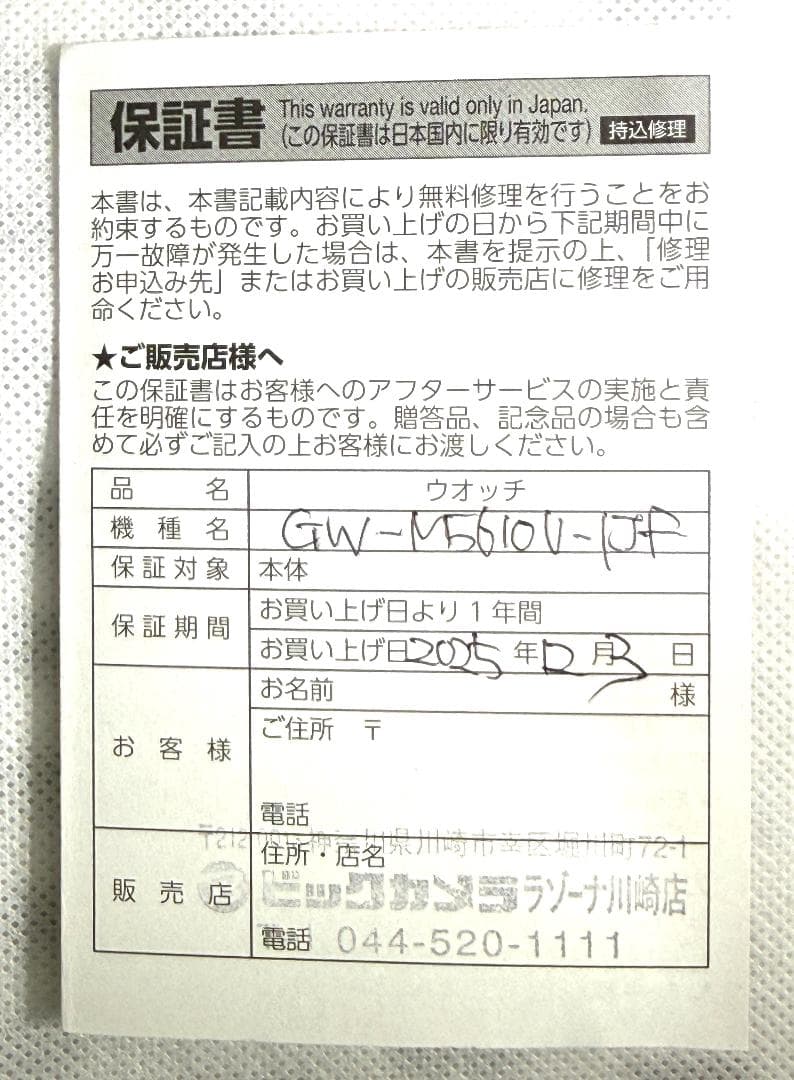 保証書 This warranty is valid only in Japan.
(この保証書は日本国内に限り有効です) 持込修理
本書は、本書記載内容により無料修理を行うことをお
約束するものです。お買い上げの日から下記期間中に
万一故障が発生した場合は、本書を提示の上、「修理
お申込み先」またはお買い上げの販売店に修理をご用
命ください。
★ご販売店様へ
この保証書はお客様へのアフターサービスの実施と責
任を明確にするものです。贈答品、記念品の場合も含
めて必ずご記入の上お客様にお渡しください。
品名 ウオッチ
機種名 GW-M5610U-1JF
保証対象 本体
保証期間 お買い上げ日より1年間
お買い上げ日 2025年12月3日
お客様 お名前 様
ご住所 〒
電話
神奈川県川崎市幸区堀川町72-1
販売店 住所・店名
ビックカメラ ラゾーナ川崎店
電話 044-520-1111